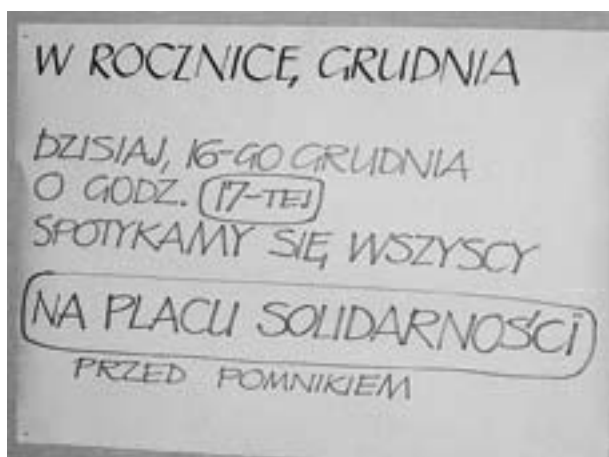 W ROCZNICĘ GRUDNIA
DZISIAJ, 16-GO GRUDNIA
O GODZ. 17-TEJ
SPOTYKAMY SIĘ WSZYSCY
NA PLACU SOLIDARNOŚCI
PRZED POMNIKIEM